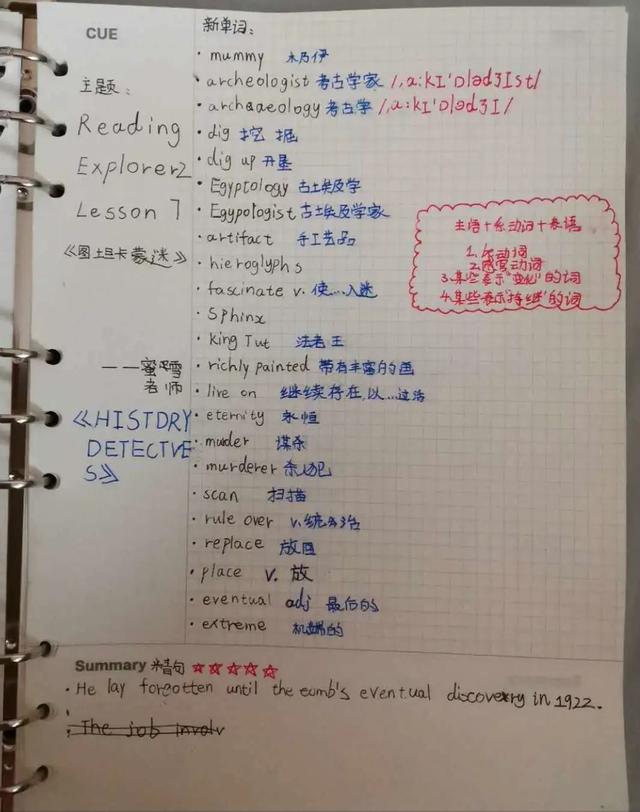 CUE
主题:
Reading
Explorer2
Lesson 7
《图坦卡蒙谜》
——蜜雪
老师
《HISTDRY
DETECTVE
S》
新单词:
· mummy 木乃伊
· archeologist 考古学家 /,a:kI'Dlədʒɪst/
· archaaeology 考古学 /,a:kI'Dlədʒɪ/
· dig 挖 掘
· dig up 开垦
· Egyptology 古埃及学
· Egypologist 古埃及学家
· artifact 手工艺品
· hieroglyphs
· fascinate v. 使...入迷
· Sphinx
· King Tut 法老王
· richly painted 带有丰富的画
· live on 继续存在,以...过活
· eternity 永恒
· murder 谋杀
· murderer 杀人犯
· scan 扫描
· rule over v.统治
· replace 放回
· place v. 放
· eventual adj 最后的
· extreme 极端的
主语+系动词+表语
1.系动词
2.感官动词
3.某些表示"变化"的词
4.某些表示"持继"的词
Summary 精句 ☆☆☆☆☆
· He lay forgotten until the eomb's eventual discovery in 1922.
· The job involv